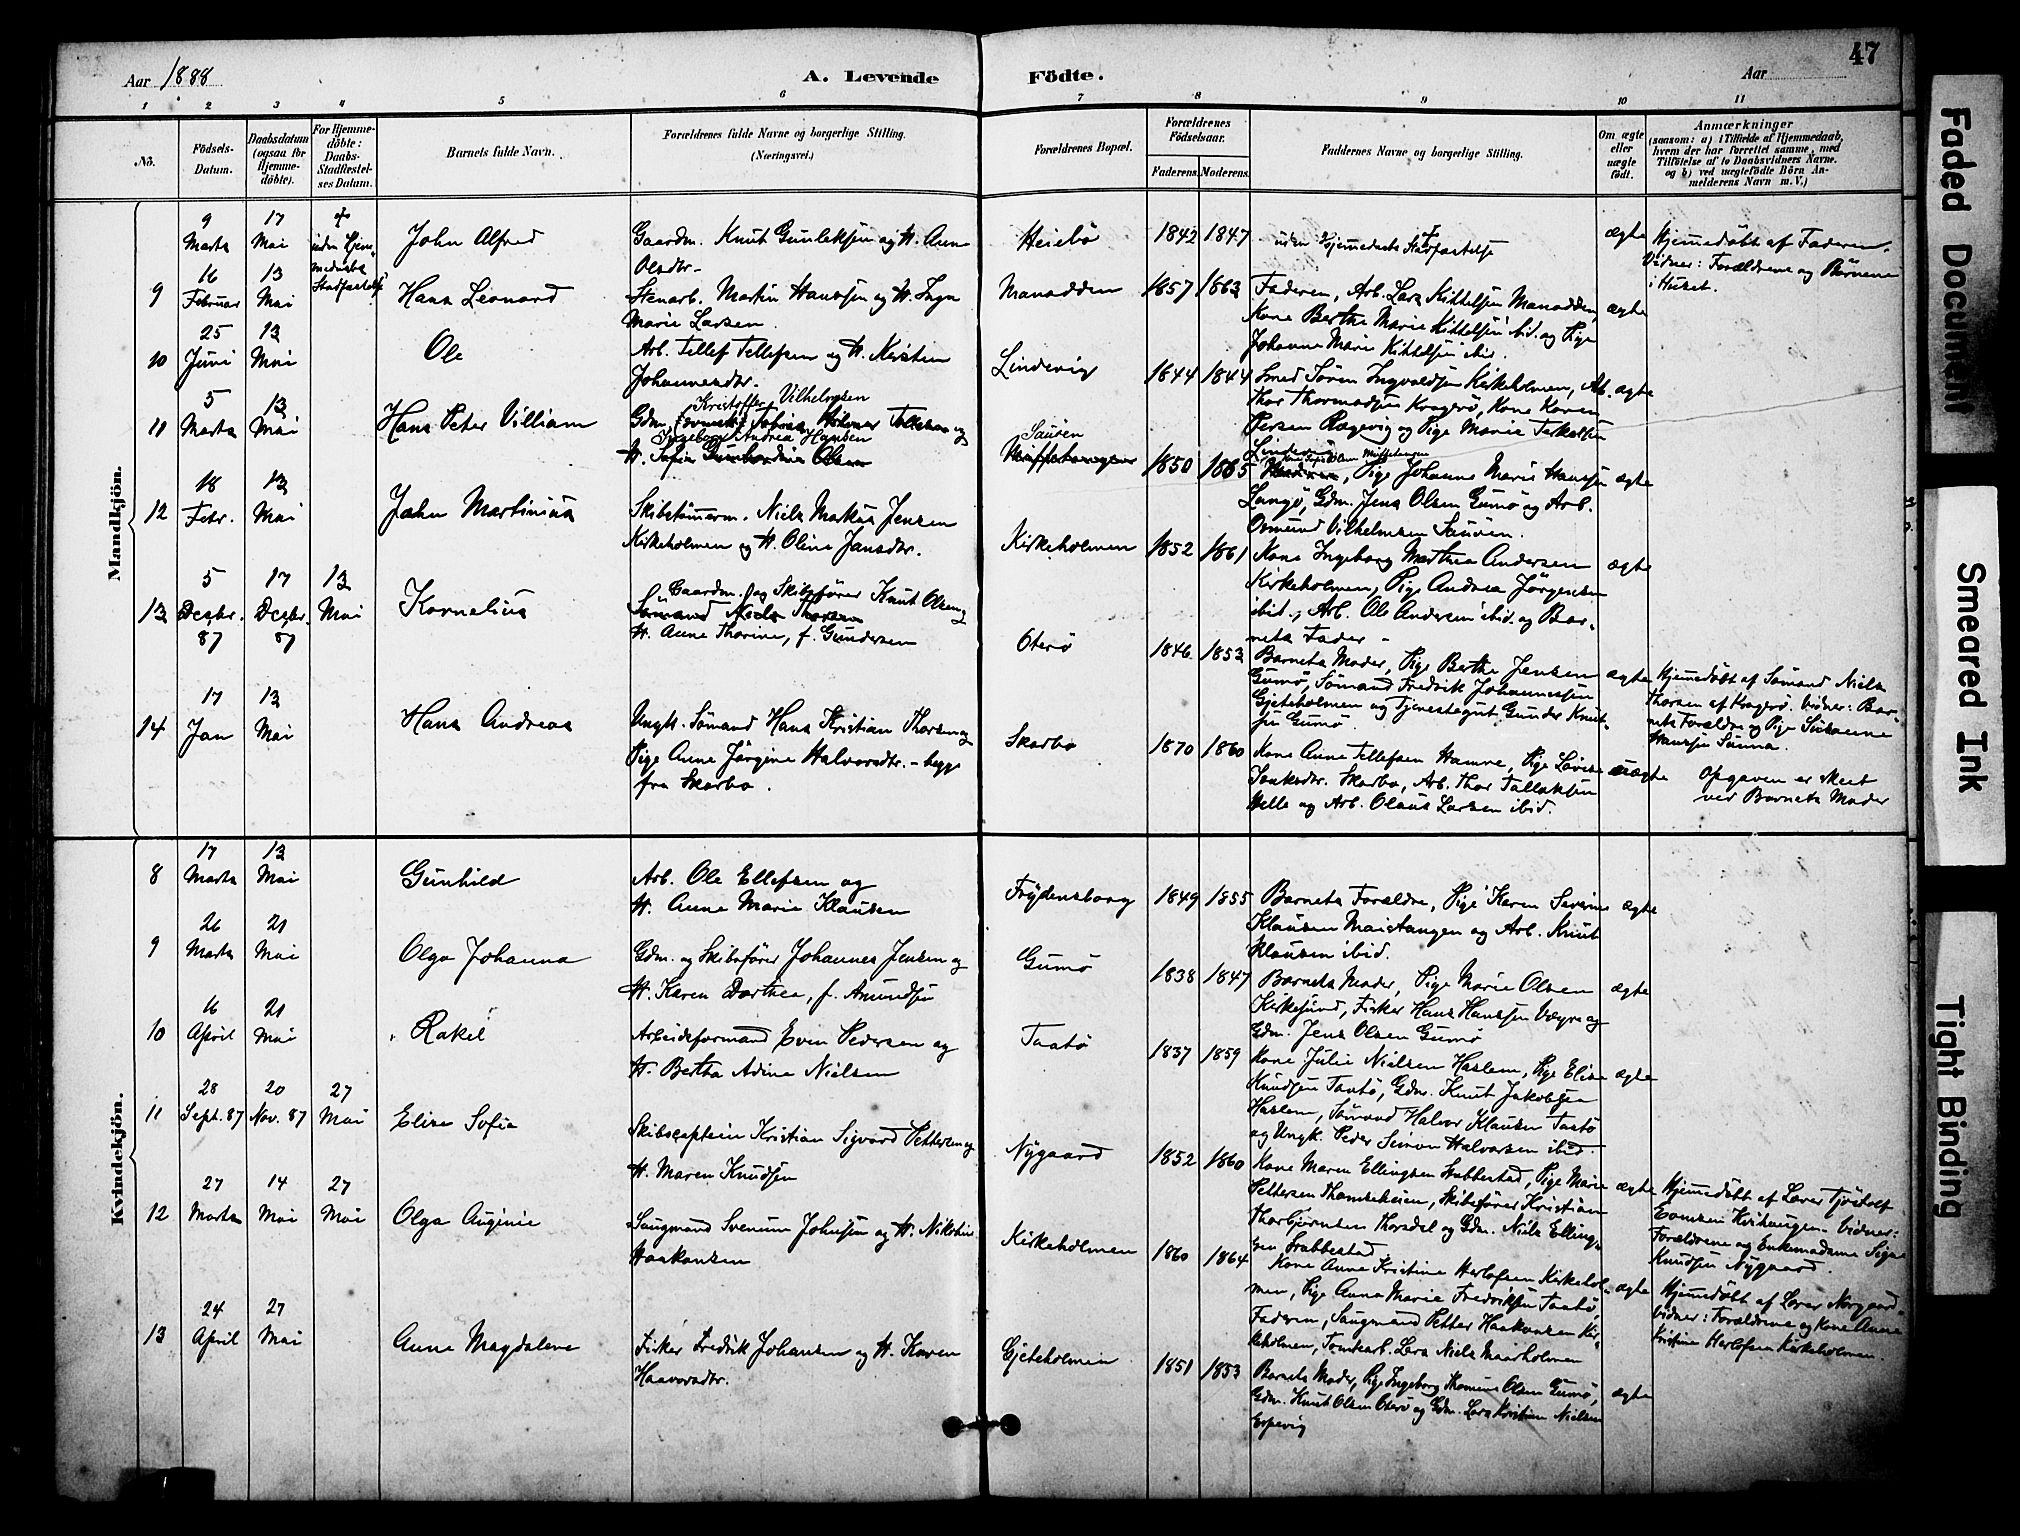 47
Aar 1888
A. Levende Födte.
Aar
1 2 3 4 5 6 7 8 9 10 11
No.
Födsels-Datum.
Daabsdatum (ogsaa for Hjemme-döbte).
For Hjemme-döbte: Daabs-Stadfæstel-ses Datum.
Barnets fulde Navn.
Forældrenes fulde Navne og borgerlige Stilling. (Næringsvei.)
Forældrenes Bopæl.
Forældrenes Födselsaar.
Faderens. Moderens.
Faddernes Navne og borgerlige Stilling.
Om ægte eller uægte födt.
Anmærkninger
(saasom: a) i Tilfælde af Hjemmedaab,
hvem der har forrettet samme, med
Tilföielse af to Daabsvidners Navne.
og b) ved uægtefödte Börn An-
melderens Navn m. V.)
Mandkjön.
9 Marts
17 Mai
John Alfred
Gaardm. Knut Gunleksen og H. Anne
Olsdtr.
Heiebö
1842 1847
ægte
Hjemmedöbt af Faderen.
Vidner: Forældrene og Börnene
i Huset.
9
16 Februar
13 Mai
Hans Leonard
Stenarb. Martin Hanssen og H. Inga
Marie Larsen.
Manodden
1857 1863
Faderen, Arb. Lars Kittelsen Manodden,
Kone Berthe Marie Kittelsen ibid. og Pige
Johanne Marie Kittelsen ibid.
ægte
10
25 Juni
13 Mai
Ole
Arb. Tellef Tellefsen og H. Kirsten
Johannesdtr.
Lindvig
1844 1844
Smed Sören Ingvaldsen Kirkeholmen, Arb.
Thor Thormodsen Kragerö, Kone Karen
Persen Rægevig og Pige Marie Terkelsen
Lindvig
ægte
11
5 Marts
13 Mai
Hans Peter Villiam
Kristoffer Vilhelmsen
Ingeborg Andrea Hansen
Sauöen
1850 1865
Pige Johanne Marie Hanssen
Langö, Gdm. Jens Olsen Gumö og Arb.
Osmund Vilhelmsen Sauöen.
ægte
12
18 Febr.
13 Mai
John Martinius
Skibstömmerm. Niels Markus Jensen
Kirkeholmen og H. Oline Jansdtr.
Kirkeholmen
1852 1861
Kone Ingeborg Marthea Andersen
Kirkeholmen, Pige Andrea Jörgensen
ibid., Arb. Ole Andersen ibid. og Bar-
nets Fader
ægte
13
5 Decbr. 87
17 Decbr. 87
13 Mai
Kornelius
Gaardm. og Skibsförer Knut Olsen og
Sömand Niels Thorsen
H. Anne Thorine, f. Gundersen
Oterö
1846 1853
Barnets Moder, Pige Berthe Jensen
Gumö, Sömand Fredrik Johannessen
Gjeteholmen og Tjenestegut Gunder Knut-
sen Gumö
ægte
Hjemmedöbt af Sömand Niels
Thorsen af Kragerö. Vidner: Bar-
nets Forældre og Pige Susanne
Hanssen
14
17 Jan
13 Mai
Hans Andreas
Ungk. Sömand Hans Kristian Thorsen og
Pige Anne Jörgine Halvorsdtr. - begge
fra Skarbo.
Skarbo
1870 1860
Kone Anne Tellefsen Hamre, Pige Lovise
Isaksdtr. Skarbo, Arb. Thor Tallaksen
Helle og Arb. Olaus Larsen ibid.
uægte
Opgaven er skeet
ved Barnets Moder
Kvindekjön.
8
17 Marts
13 Mai
Gunhild
Arb. Ole Ellefsen og
H. Anne Marie Klausen
Frydensborg
1849 1855
Barnets Forældre, Pige Karen Severine
Klausen Maistangen og Arb. Knut
Klausen ibid.
ægte
9
26 Marts
21 Mai
Olga Johanna
Gdm. og Skibsförer Johannes Jensen og
H. Karen Dorthea, f. Amundsen
Gumö
1838 1847
Barnets Moder, Pige Marie Olsen
Kirkesund, Fisker Hans Hanssen og
Gdm. Jens Olsen Gumö
ægte
10
16 April
21 Mai
Rakel
Arbeidsformand Even Pedersen og
H. Bertha Adine Nielsen
Taatö
1837 1859
Kone Julie Nielsen Haslem, Pige Elise
Knudsen Taatö, Gdm. Knut Jakobsen
Haslem, Sömand Halvor Klausen Taatö
og Ungk. Peder Simon Halvorsen ibid.
ægte
11
28 Sept. 87
20 Nov. 87
27 Mai
Elise Sofie
Skibscaptein Kristian Sigvard Pettersen og
H. Maren Knudsen
Nygaard
1852 1860
Kone Maren Ellingsen Stabbestad, Pige Marie
Pettersen Thomsheien, Skibsförer Kristian
Thorbjörnsen Thorsdal og Gdm. Niels Elling-
sen Stabbestad
ægte
Hjemmedöbt af Lærer Tjöstolf
Evensen Vidner:
Forældrene og Enkemadame Signe
Knudsen Nygaard.
12
27 Marts
14 Mai
27 Mai
Olga Auginie
Saugmand Svenum Johnsen og H. Nikoline
Haakonsen
Kirkeholmen
1860 1864
Kone Anne Kristine Herlofsen Kirkehol-
men, Pige Anna Marie Fredriksen Taatö,
Faderen, Saugmand Petter Haakonsen Kir-
keholmen, Tomtearb. Lars Niels Maarholmen
ægte
Hjemmedöbt af Lærer Norgaard.
Vidner: Forældrene og Kone Anne
Kristine Herlofsen Kirkeholmen.
13
24 April
27 Mai
Anne Magdalene
Fisker Fredrik Johansen og H. Karen
Haavorsdtr.
Gjeteholmen
1851 1853
Barnets Moder, Pige Ingeborg Thomine Olsen Gumö,
Gdm. Knut Olsen Oterö og Gdm. Lars Kristian Nielsen
Espevig
ægte
Faded Document
Smeared Ink
Tight Binding